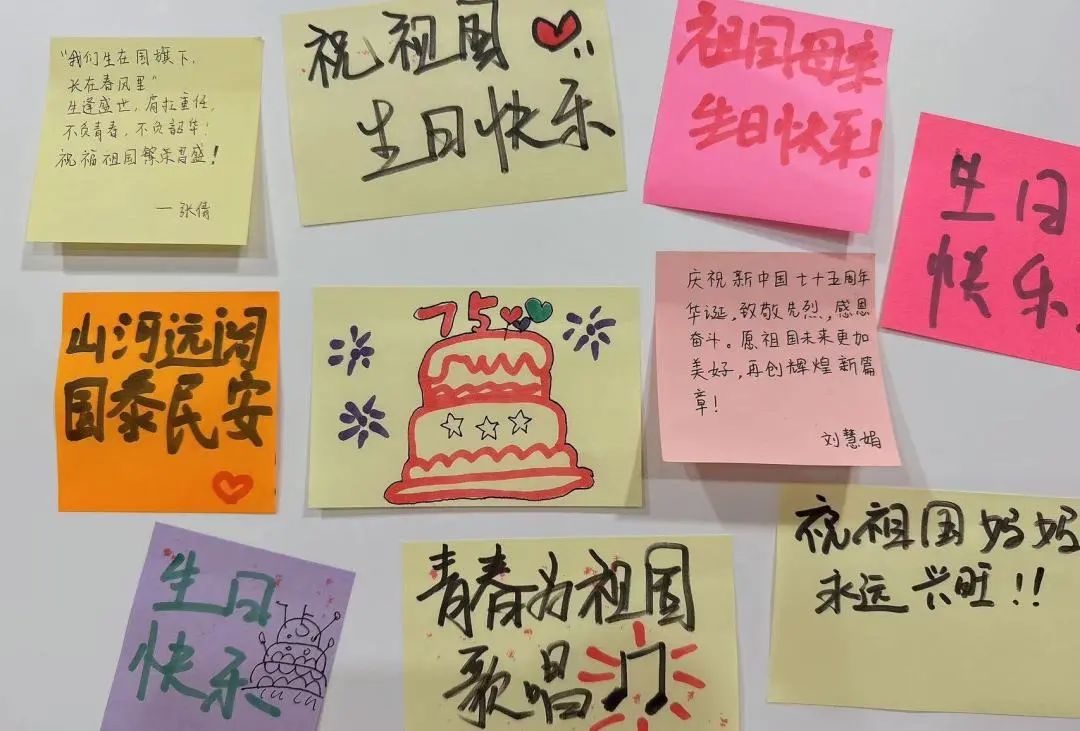 “我们生在国旗下,
长在春风里”
生逢盛世,肩扛重任,
不负青春,不负韶华!
祝福祖国繁荣昌盛!
—张倩
祝祖国
生日快乐
祖国母亲
生日快乐!
生日
快乐
山河远阔
国泰民安
75
庆祝新中国七十五周年
华诞,致敬先烈,感恩
奋斗。愿祖国未来更加
美好,再创辉煌新篇
章!
刘慧娟
生日
快乐
75
青春为祖国
歌唱
祝祖国妈妈
永远兴旺!!